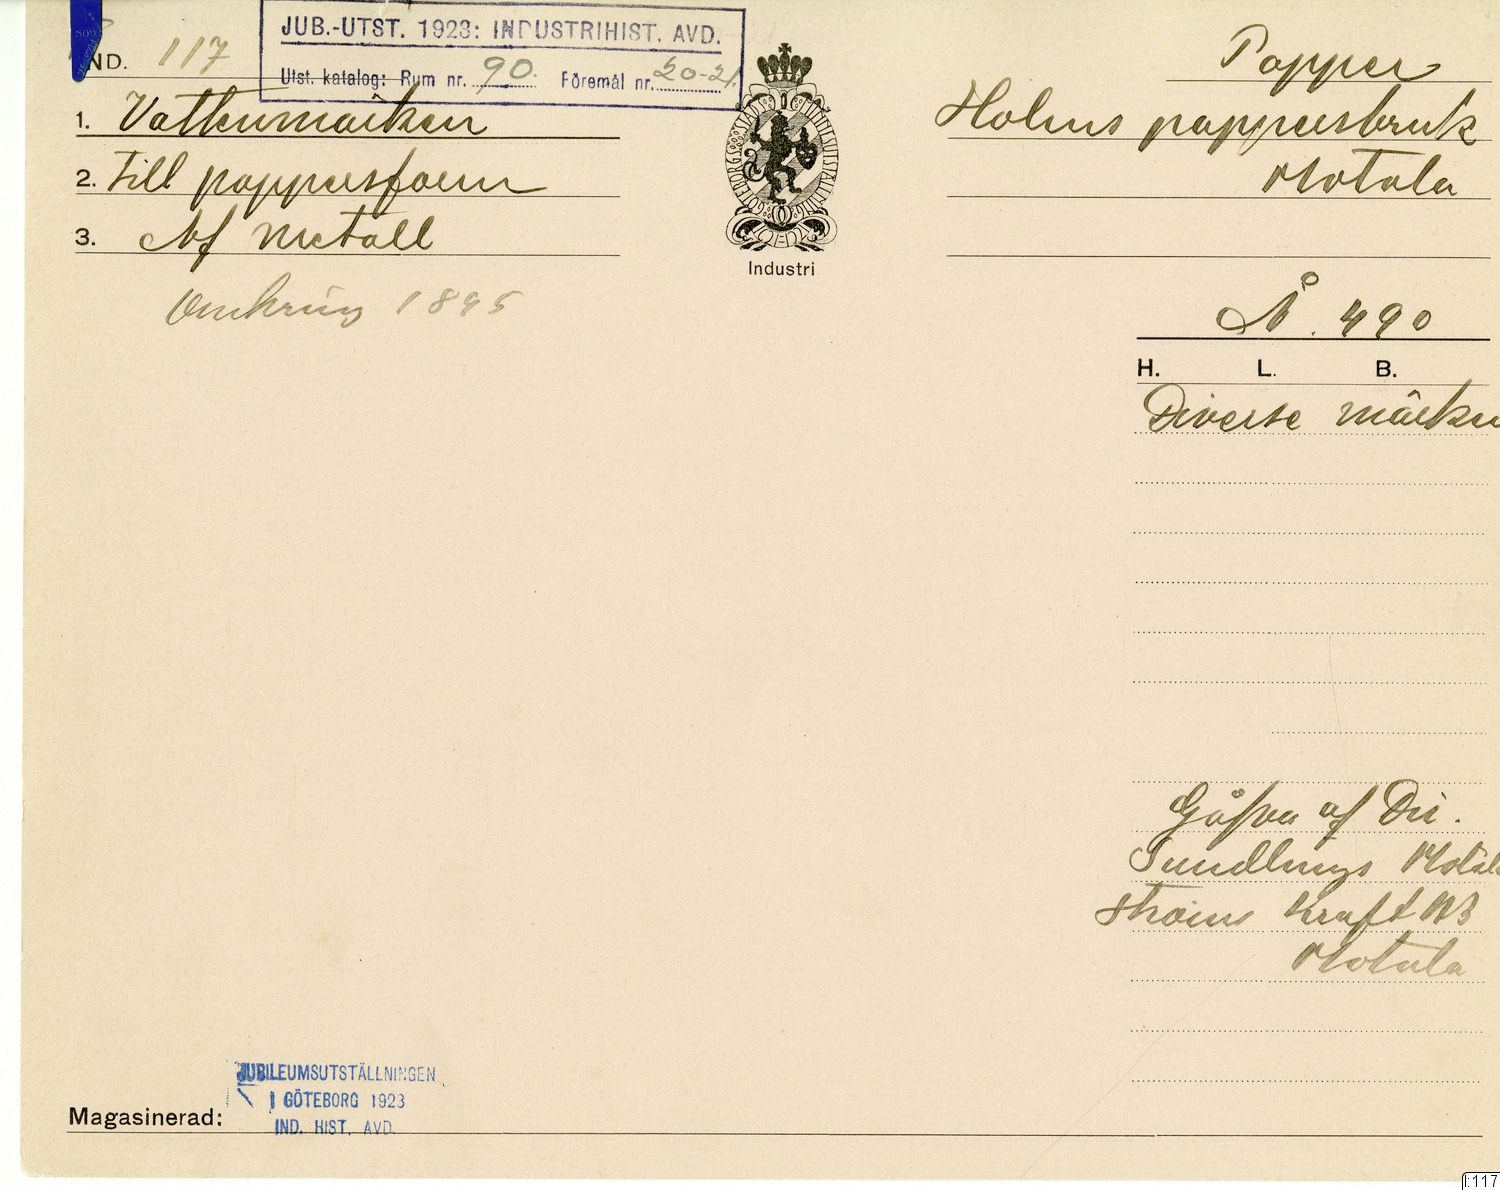 IND. 117
JUB.-UTST. 1923: INDUSTRIHIST. AVD.
Utst. katalog: Rum nr. 90. Föremål nr. 20-21.
1. Vattenmärken
2. Till pappersform
3. Af metall
Omkring 1895
GÖTEBORGS STADS MINNESUTSTÄLLNING
Industri
Papper
Holms pappersbruk
Motala
Å. 490
H. L. B.
Diverse märken
Gåfva af Dir.
Sundlings Motala
Ströms Kraft AB
Motala
JUBILEUMSUTSTÄLLNINGEN
I GÖTEBORG 1923
IND. HIST. AVD.
Magasinerad:
I:117